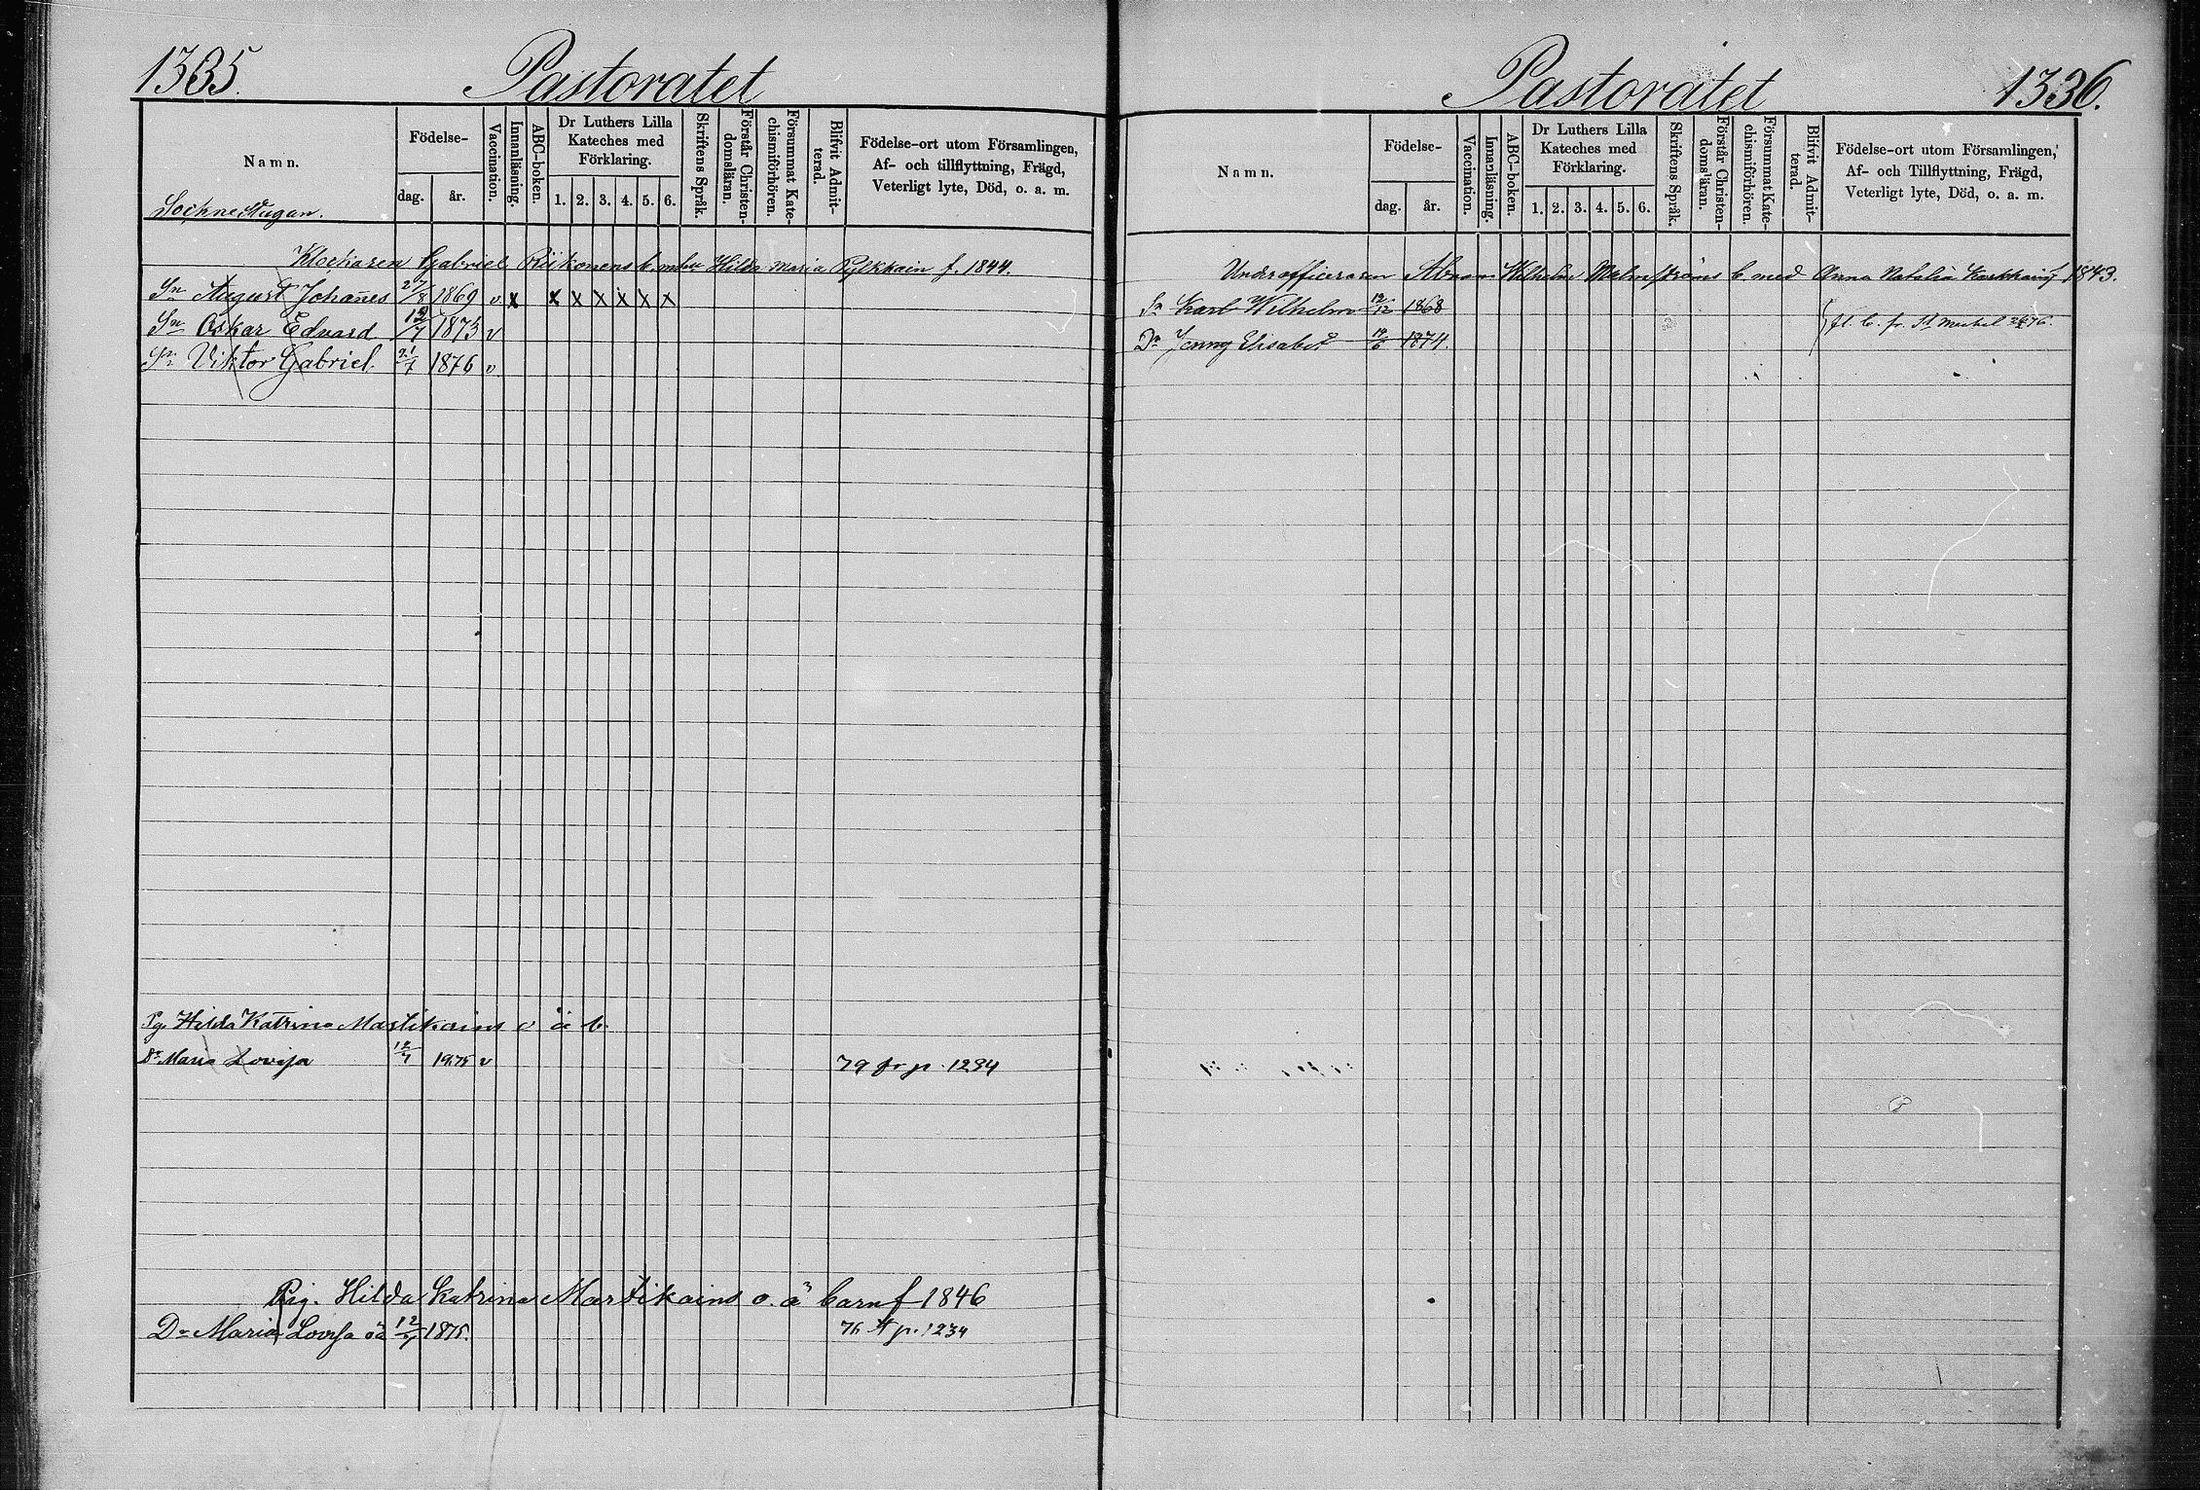 1335. Pastoratet
Namn.
Födelse-
dag.
år.
Vaccination.
Innanläsning.
ABC-boken.
Dr Luthers Lilla
Kateches med
Förklaring.
1. 2. 3. 4. 5. 6.
Skriftens Språk.
Förstår Christen-
domsläran.
Försummat Kate-
chismiförhören.
Blifvit Admit-
terad.
Födelse-ort utom Församlingen,
Af- och tillflyttning, Frägd,
Veterligt lyte, Död, o. a. m.
Sockne Stugan.
Klockaren Gabriel Riikonens b. m. hu Hilda Maria Pylkkäin f. 1844.
Sn August Johannes 27/8 1869 v x x x x x x x
Sn Oskar Edvard 12/7 1873 v
Sn Viktor Gabriel. 21/7 1876 v
Pig. Hilda Katrina Martikains o ä b.
Dr Maria Lovisa 12/7 1875 v 79 fr p. 1234
Pig. Hilda Katrina Martikains o. ä barn f 1846
Dr Maria Lovisa oä 12/7 1875. 76 fr p. 1234
Pastoratet 1336.
Namn.
Födelse-
dag.
år.
Vaccination.
Innanläsning.
ABC-boken.
Dr Luthers Lilla
Kateches med
Förklaring.
1. 2. 3. 4. 5. 6.
Skriftens Språk.
Förstår Christen-
domsläran.
Försummat Kate-
chismiförhören.
Blifvit Admit-
terad.
Födelse-ort utom Församlingen,
Af- och Tillflyttning, Frägd,
Veterligt lyte, Död, o. a. m.
Underofficeraren Abram Wilhelm Malmströms b. med Anna Natalia Karkkain f 1843.
Sn Karl Wilhelm 12/12 1868
fl. b. fr. St Michel 76.
Dr Jenny Elisabet 19/6 1874.